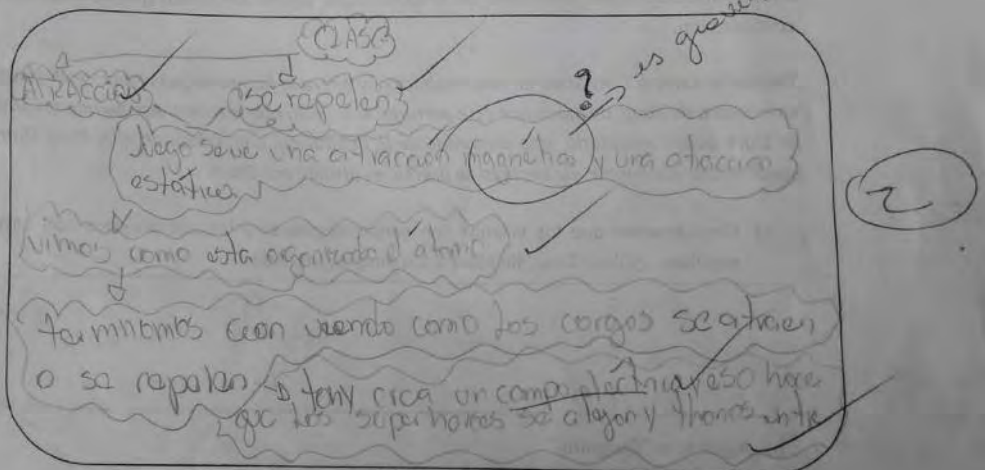 CLASE
es
ATRACCIÓN se repelen ?
luego se ve una atracción magnética y una atracción
estática
2
vimos como esta organizado el átomo
terminamos con viendo como los cargos se atraen
o se repelen tony crea un campo eléctrico, eso hace
que los superheroes se alejan y thanos entre